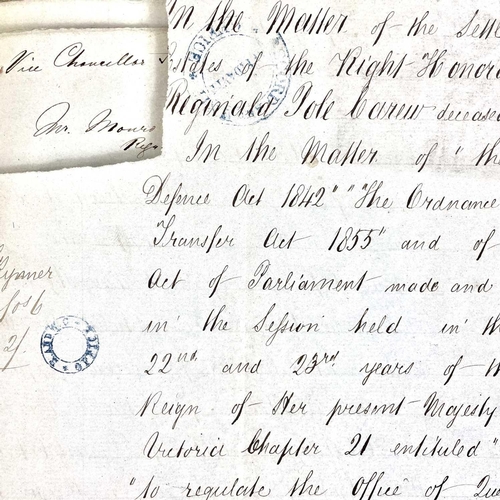 In the Matter of the Settle
Vice Chancellor
Estates of the Right Honora
Reginald Pole Carew deceased
Mr. Monro
Regr
In the Matter of "the
Defence Act 1842" "The Ordnance
Transfer Act 1855" and of
Act of Parliament made and
in the Session held in th
22nd. and 23rd. years of th
Reign of Her present Majesty
Victoria Chapter 21 entituled "
"to regulate the Office of Que
fos 6
2/